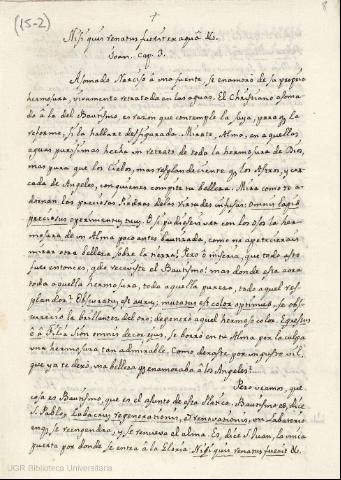 (15-2)
8
Nisi quis renatus fuerit ex aquâ &c.
Joan. cap. 3.
Asomado Narciso á una fuente, se enamoró de su propria
hermosura, vivamente retratada en las aguas. El Christiano asoma-
do á la del Bautismo es razon que contemple la suya, para q̃ la
reforme, si la hallare desfigurada. Mirate, Alma, en aquellas
aguas purisimas hecha un retrato de toda la hermosura de Dios,
mas pura que los Cielos, mas resplandeciente q̃ los Astros, y cer-
cada de Angeles, con quienes compite tu belleza. Mira como te a-
dornan las preciosas Piedras de las virtudes infusas: omnis lapis
pretiosus operimentum tuum. O si pudieses ver con los ojos la her-
mosura de un Alma poco antes bautizada, como no apetecerias
mirar otra belleza sobre la tierra! Pero ô miseria, que todo esto
fue entonces, qdo reciviste el Bautismo! mas donde está aora
toda aquella hermosura, toda aquella pureza, todo aquel res-
plandor? Obscuratum est aurum; mutatus est color optimus. Se obs-
cureció la brillantez del oro; degeneró aquel hermoso color. Egressus
é â Filiâ Sion omnis decor ejus, se borró en tu Alma por la culpa
una hermosura tan admirable. Como dexaste por un gusto vil,
que ya te dexó, una belleza q̃ enamoraba á los Angeles?
Pero veamos, que
cosa es Bautismo, que es el asunto de esta Platica. Bautismo es, dice
S. Pablo, Labacrum regenerationis, et renovationis, un Labatorio
en q̃ se reengendra, y se renueva el alma. Es, dice S. Juan, la unica
puerta por donde se entra á la Gloria Nisi quis renatus fuerit &c.
UGR Biblioteca Universitaria